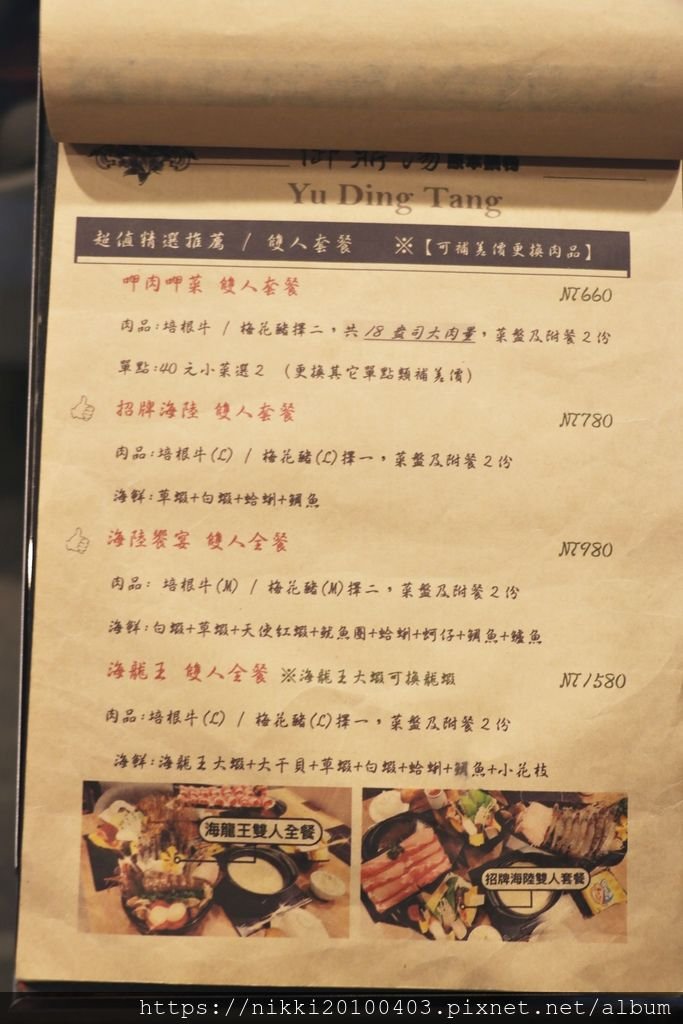 Yu Ding Tang
超值精選推薦 / 雙人套餐 ※【可補差價更換肉品】
呷肉呷菜 雙人套餐 NT660
肉品:培根牛 / 梅花豬擇二,共 18 盎司大肉量,菜盤及附餐2份
單點:40元小菜選2 (更換其它單點類補差價)
招牌海陸 雙人套餐 NT780
肉品:培根牛(L) / 梅花豬(L)擇一,菜盤及附餐2份
海鮮:草蝦+白蝦+蛤蜊+鯛魚
海陸饗宴 雙人全餐 NT980
肉品: 培根牛(M) / 梅花豬(M)擇二,菜盤及附餐2份
海鮮:白蝦+草蝦+天使紅蝦+魷魚圈+蛤蜊+蚵仔+鯛魚+鱸魚
海龍王 雙人全餐 ※海龍王大蝦可換龍蝦 NT1580
肉品:培根牛(L) / 梅花豬(L)擇一,菜盤及附餐2份
海鮮:海龍王大蝦+大干貝+草蝦+白蝦+蛤蜊+鯛魚+小花枝
海龍王雙人全餐
招牌海陸雙人套餐
https://nikki20100403.pixnet.net/album